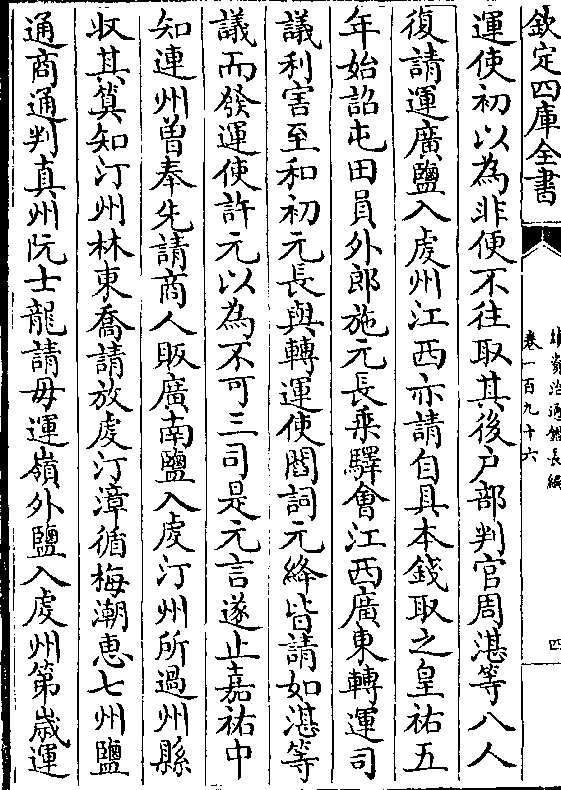 欽定四庫全書
續資治通鑑長編
卷一百九十六
四
運使初以為非便不往取其後户部判官周湛等八人
復請運廣鹽入䖍州江西亦請自具本錢取之皇祐五
年始詔屯田員外郎施元長乘驛會江西廣東轉運司
議利害至和初元長與轉運使閻詢元絳皆請如湛等
議而發運使許元以為不可三司是元言遂止嘉祐中
知連州曾奉先請商人販廣南鹽入䖍汀州所過州縣
收其算知汀州林東喬請放䖍汀漳循梅潮惠七州鹽
通商通判真州阮士龍請毋運嶺外鹽入䖍州第歲運